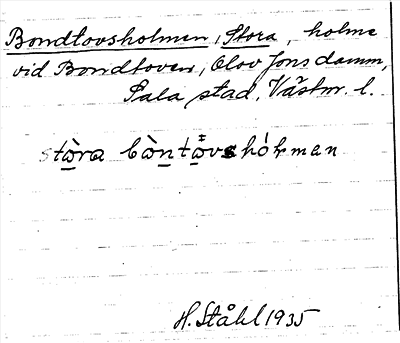 Bondtovsholmen, Stora, holme
vid Bondtoven, Olov Jons damm,
Sala stad. Västm. l.
stò̱ra bòn̠tò̱vshólman
H. Ståhl 1935